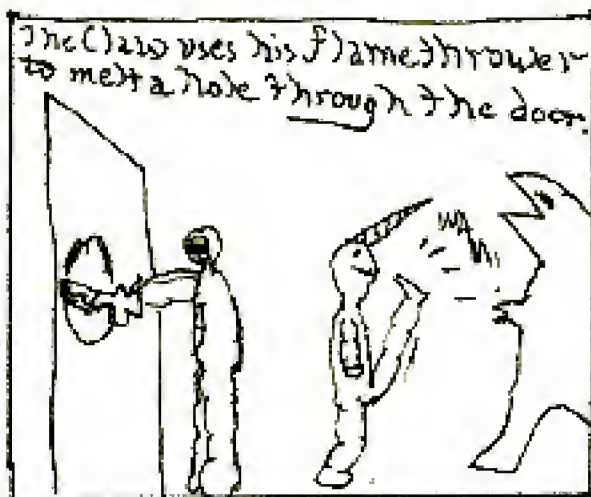 The Claw uses his flamethrower
to melt a hole through the door.